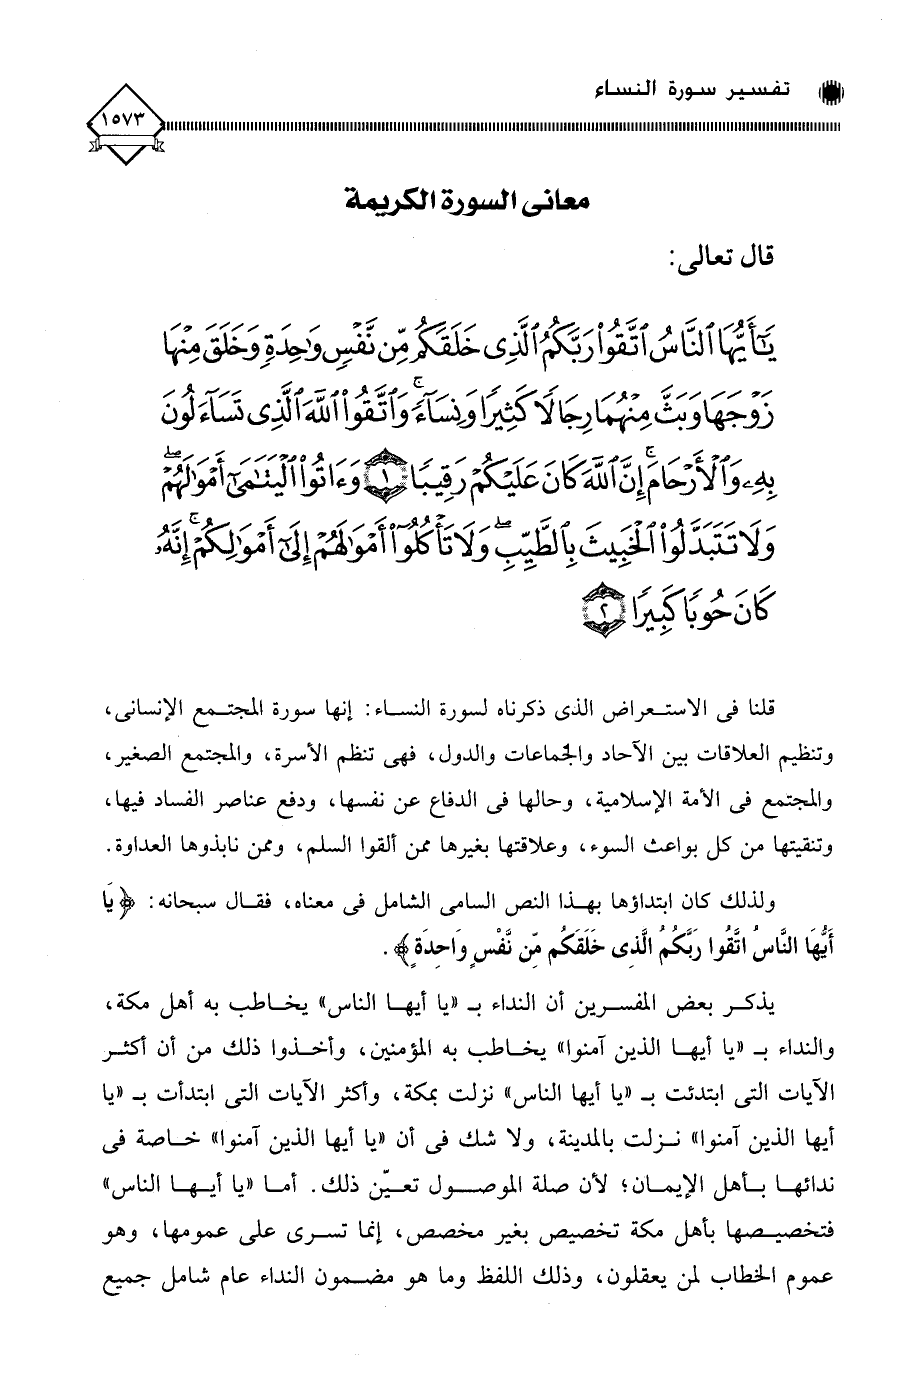 تفسير سورة النساء
١٥٧٣
معانى السورة الكريمة
قال تعالى:
يَٰٓأَيُّهَا ٱلنَّاسُ ٱتَّقُوا۟ رَبَّكُمُ ٱلَّذِى خَلَقَكُم مِّن نَّفْسٍ وَٰحِدَةٍ وَخَلَقَ مِنْهَا
زَوْجَهَا وَبَثَّ مِنْهُمَا رِجَالًا كَثِيرًا وَنِسَآءً ۚ وَٱتَّقُوا۟ ٱللَّهَ ٱلَّذِى تَسَآءَلُونَ
بِهِۦ وَٱلْأَرْحَامَ ۚ إِنَّ ٱللَّهَ كَانَ عَلَيْكُمْ رَقِيبًا ١ وَءَاتُوا۟ ٱلْيَتَٰمَىٰٓ أَمْوَٰلَهُمْ ۖ
وَلَا تَتَبَدَّلُوا۟ ٱلْخَبِيثَ بِٱلطَّيِّبِ ۖ وَلَا تَأْكُلُوٓا۟ أَمْوَٰلَهُمْ إِلَىٰٓ أَمْوَٰلِكُمْ ۚ إِنَّهُۥ
كَانَ حُوبًا كَبِيرًا ٢
قلنا فى الاستعراض الذى ذكرناه لسورة النساء: إنها سورة المجتمع الإنسانى،
وتنظيم العلاقات بين الآحاد والجماعات والدول، فهى تنظم الأسرة، والمجتمع الصغير،
والمجتمع فى الأمة الإسلامية، وحالها فى الدفاع عن نفسها، ودفع عناصر الفساد فيها،
وتنقيتها من كل بواعث السوء، وعلاقتها بغيرها ممن ألقوا السلم، وممن نابذوها العداوة.
ولذلك كان ابتداؤها بهذا النص السامى الشامل فى معناه، فقال سبحانه: ﴿يَا
أَيُّهَا النَّاسُ اتَّقُوا رَبَّكُمُ الَّذِى خَلَقَكُم مِّن نَّفْسٍ وَاحِدَةٍ﴾.
يذكر بعض المفسرين أن النداء بـ «يا أيها الناس» يخاطب به أهل مكة،
والنداء بـ «يا أيها الذين آمنوا» يخاطب به المؤمنين، وأخذوا ذلك من أن أكثر
الآيات التى ابتدئت بـ «يا أيها الناس» نزلت بمكة، وأكثر الآيات التى ابتدأت بـ «يا
أيها الذين آمنوا» نزلت بالمدينة، ولا شك فى أن «يا أيها الذين آمنوا» خاصة فى
ندائها بأهل الإيمان؛ لأن صلة الموصول تعيّن ذلك. أما «يا أيها الناس»
فتخصيصها بأهل مكة تخصيص بغير مخصص، إنما تسرى على عمومها، وهو
عموم الخطاب لمن يعقلون، وذلك اللفظ وما هو مضمون النداء عام شامل جميع